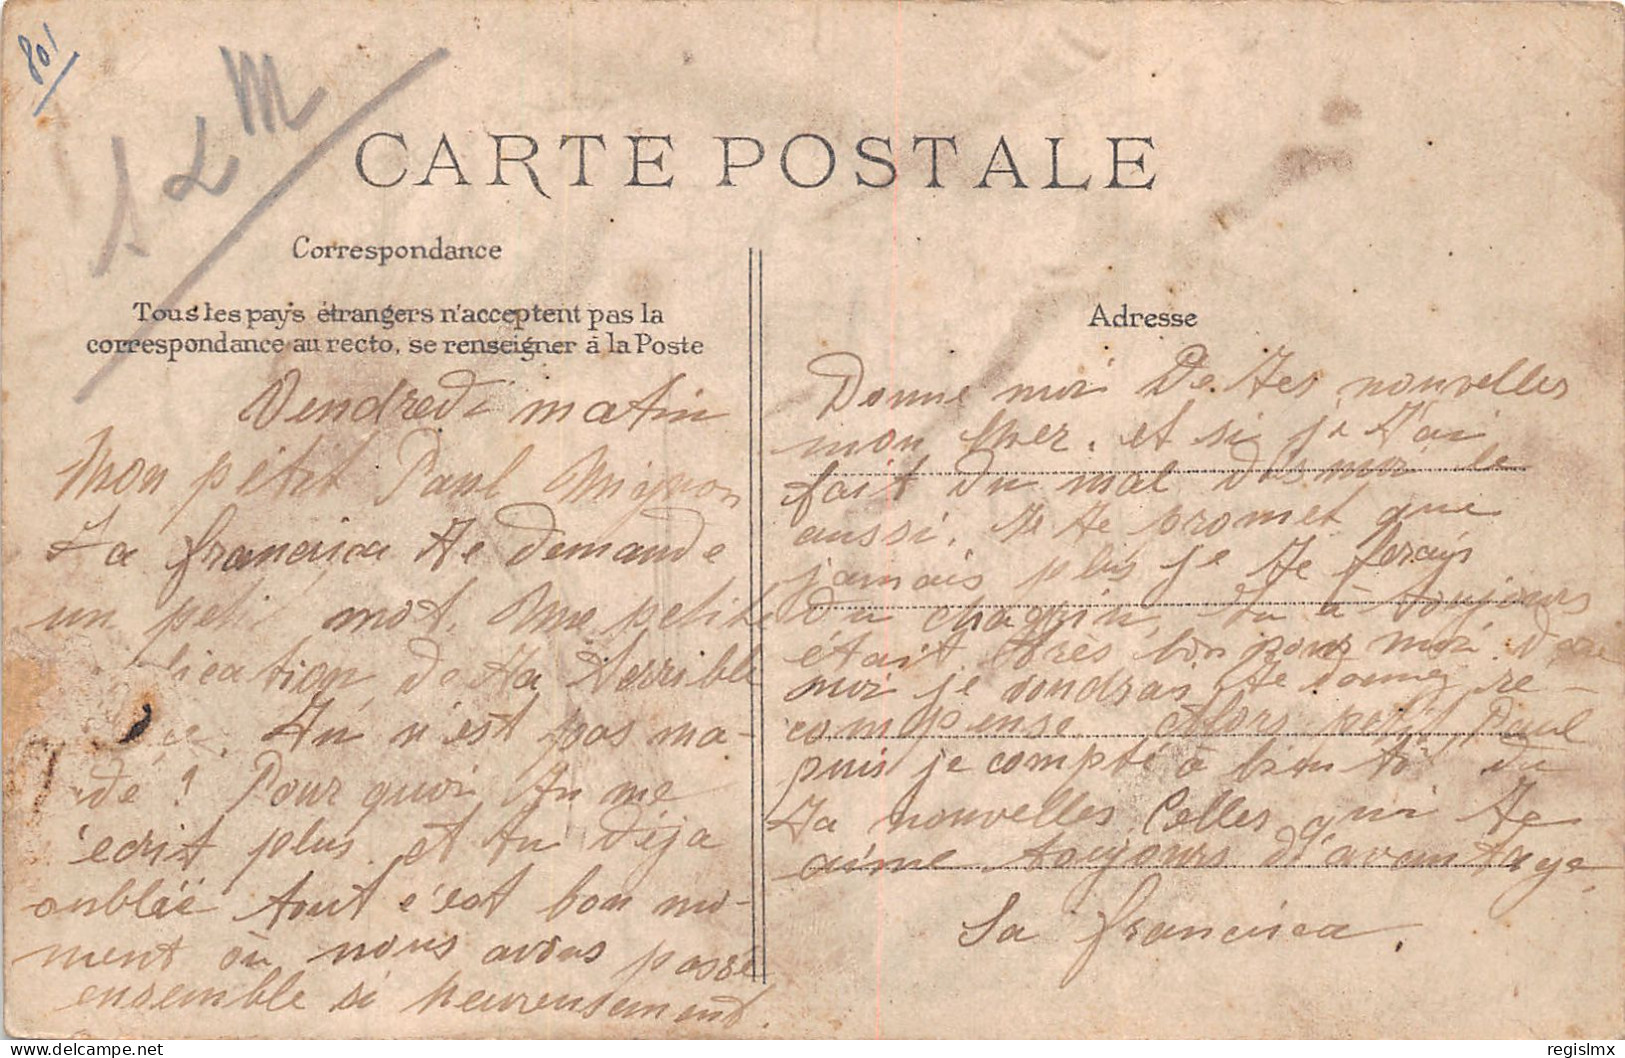 801
1 L M
CARTE POSTALE
Correspondance
Tous les pays étrangers n'acceptent pas la
correspondance au recto, se renseigner à la Poste
Vendredi matin
Mon pétit Paul Mignon
La francisca te demande
un petit mot. Une petite
lication de ta terrible
Tu n'est pas ma-
de ! Pour quoi tu me
écrit plus et tu déja
oubléé tout c'est bon mo-
ment où nous avons passé
ensemble si heureusement.
Adresse
Donne moi De tes nouvelles
mon cher. et si je t'ai
fait du mal dis moi le
aussi. Je te promet que
jamais plus je te ferais
du chagrin, tu à toujours
était très bon pour moi.
moi je voudrais te donner re-
compense. Alors petit Paul
puis je compté à bientô du
ta nouvelles. Celles qui te
aime toujours d'avantage.
Sa francisca.
regislmx